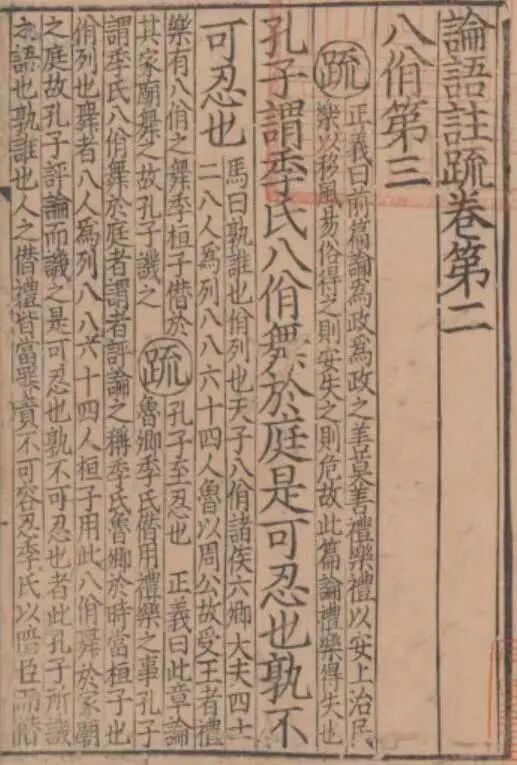 論語註疏卷第二
八佾第三
疏
正義曰前篇論爲政爲政之善莫善禮樂禮以安上治民
樂以移風易俗得之則安失之則危故此篇論禮樂得失也
孔子謂季氏八佾舞於庭是可忍也孰不
可忍也
馬曰孰誰也佾列也天子八佾諸侯六卿大夫四士
二八人爲列八八六十四人魯以周公故受王者禮
樂有八佾之舞季桓子僭於
其家廟舞之故孔子譏之
疏
孔子至忍也 正義曰此章論
魯卿季氏僭用禮樂之事孔子
謂季氏八佾舞於庭者謂者評論之稱季氏魯卿於時當桓子也
佾列也舞者八人爲列八八六十四人桓子用此八佾舞於家廟
之庭故孔子評論而譏之是可忍也孰不可忍也者此孔子所譏
之語也孰誰也人之僭禮皆當罪責不可容忍季氏以陪臣而僭